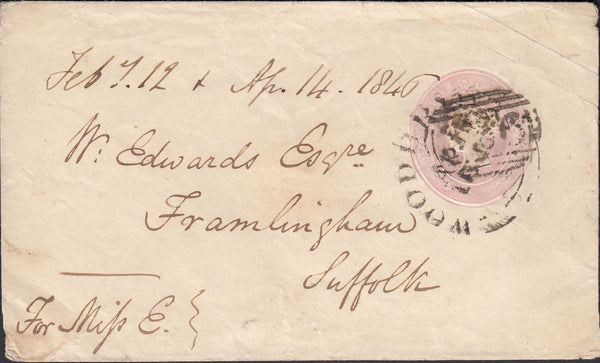 Feby. 12 & Ap. 14. 1846
W. Edwards Esqre
Framlingham
Suffolk
For Miss E.